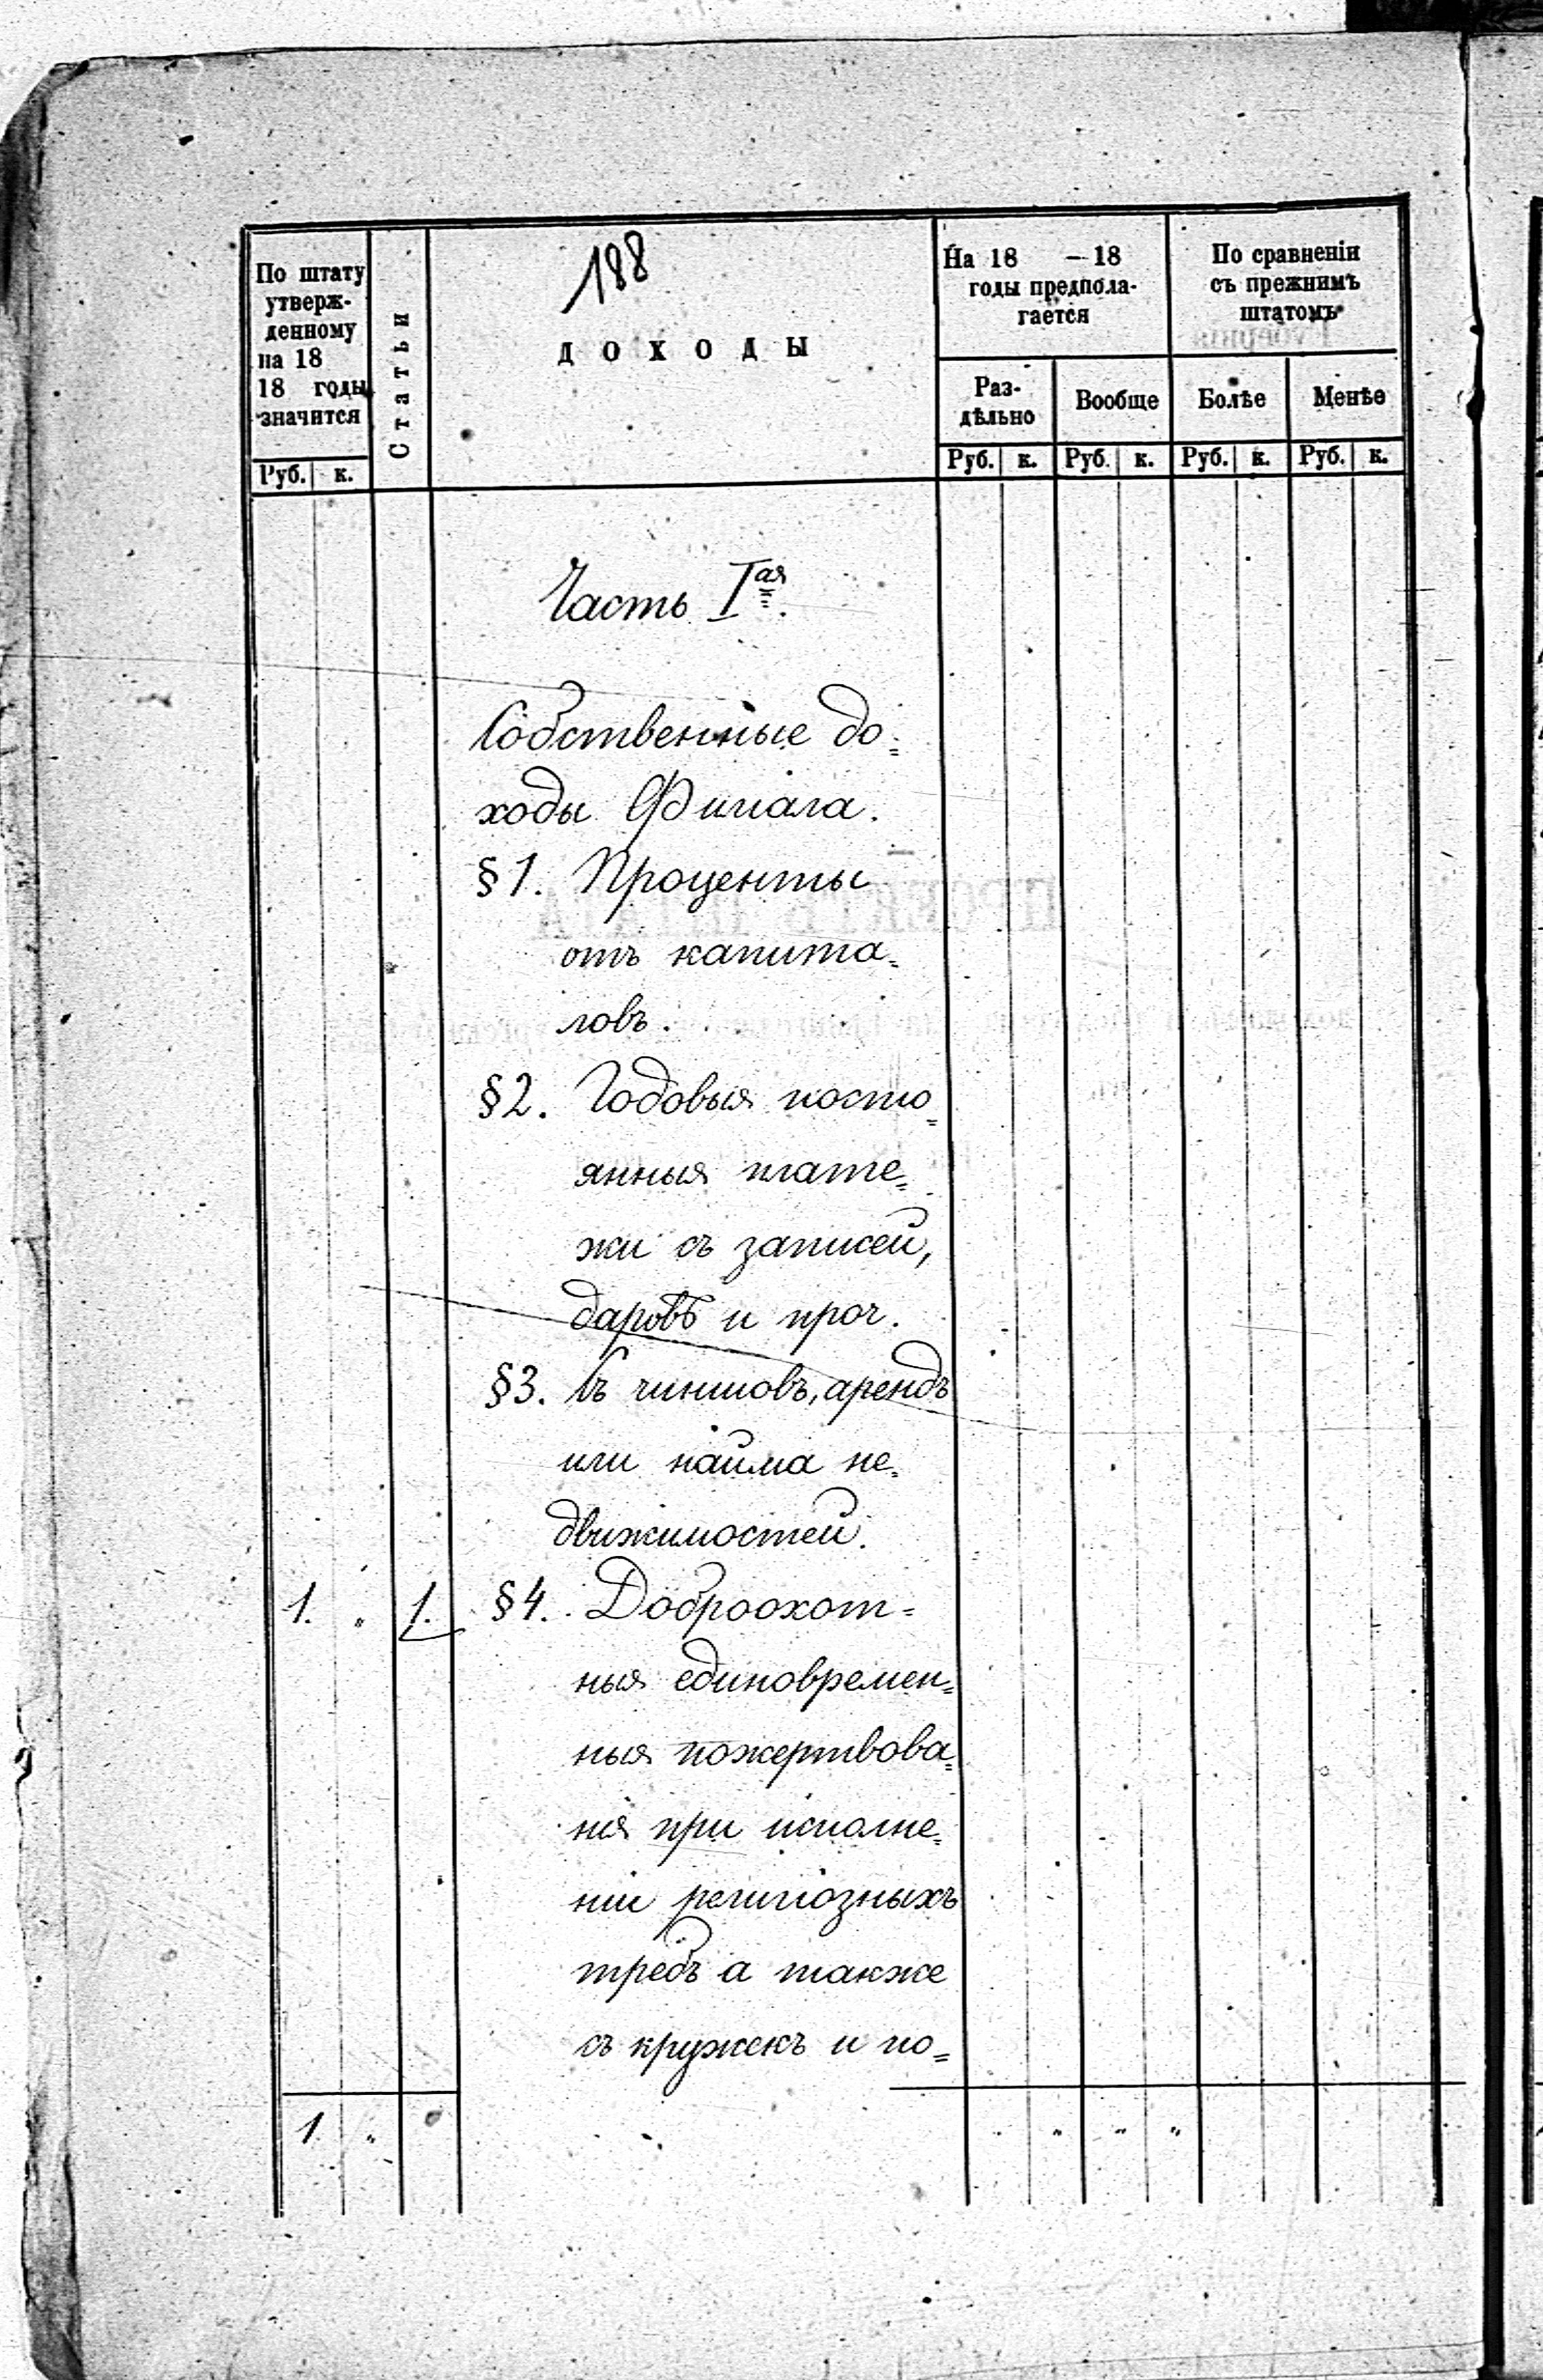 188
По штату
утверж-
денному
на 18
18 годы
значится
Руб. к.
Статьи
ДОХОДЫ
На 18 — 18
годы предпола-
гается
Раз-
дѣльно
Вообще
Руб. к. Руб. к.
По сравненіи
съ прежнимъ
штатомъ
Болѣе
Менѣе
Руб. к. Руб. к.
Часть Iая.
Собственные до=
ходы Филіала.
§1. Проценты
отъ капита=
ловъ.
§2. Годовыя посто=
янныя плате=
жи съ записей,
даровъ и проч.
§3. Съ чиншовъ, арендъ
или найма не=
движимостей.
1. „ 1. §4. Доброохот=
ныя единовремен=
ныя пожертвова=
нія при исполне=
ніи религіозныхъ
требъ а также
съ кружекъ и по=
1 „ „ „ „